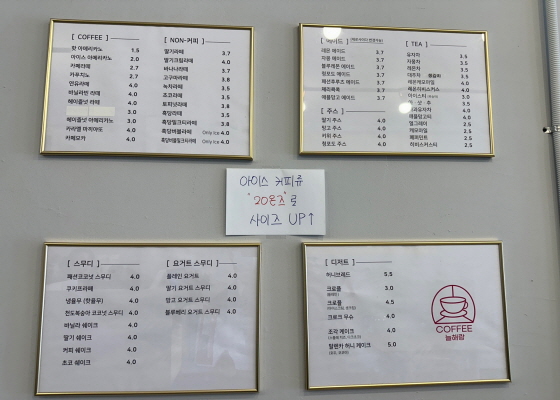 [ COFFEE ]
핫 아메리카노 1.5
아이스 아메리카노 2.0
카페라떼 2.7
카푸치노 2.7
연유라떼 4.0
바닐라빈 라떼 4.0
헤이즐넛 라떼 4.0
3.0
헤이즐넛 아메리카노 3.0
카라멜 마끼아또 4.0
카페모카 4.0
[ NON-커피 ]
딸기라떼 3.7
딸기크림라떼 4.0
바나나라떼 3.7
고구마라떼 3.8
녹차라떼 3.5
초코라떼 3.5
토피넛라떼 3.8
흑당라떼 3.5
흑당밀크티라떼 3.8
흑당버블라떼 Only Ice 4.0
흑당버블밀크티라떼 Only Ice 4.0
[ 에이드 ]
레몬 에이드 3.7
자몽 에이드 3.7
블루레몬 에이드 3.7
청포도 에이드 3.7
패션후르츠 에이드 3.7
체리콕 3.7
애플망고 에이드 3.7
[ 주스 ]
딸기 주스 4.0
망고 주스 4.0
키위 주스 4.0
청포도 주스 4.0
[ TEA ]
유자차 3.5
자몽차 3.5
레몬차 3.5
대추차 3.5
4.0
4.0
아이스티 3.0
3.5
4.0
애플망고티 4.0
얼그레이 2.5
캐모마일 2.5
페퍼민트 2.5
히비스커스티 2.5
아이스 커피류
"20온즈"로
사이즈 UP↑
[ 스무디 ]
패션코코넛 스무디 4.0
쿠키프라페 4.0
4.0
천도복숭아 코코넛 스무디 4.0
바닐라 쉐이크 4.0
딸기 쉐이크 4.0
커피 쉐이크 4.0
초코 쉐이크 4.0
[ 요거트 스무디 ]
플레인 요거트 4.0
딸기 요거트 스무디 4.0
망고 요거트 스무디 4.0
블루베리 요거트 스무디 4.0
[ 디저트 ]
허니브레드 5.5
크로플 3.0
크로플 4.5
크로크 무슈 4.0
조각 케이크 4.0
말렌카 허니 케이크 5.0
COFFEE
늘해랑